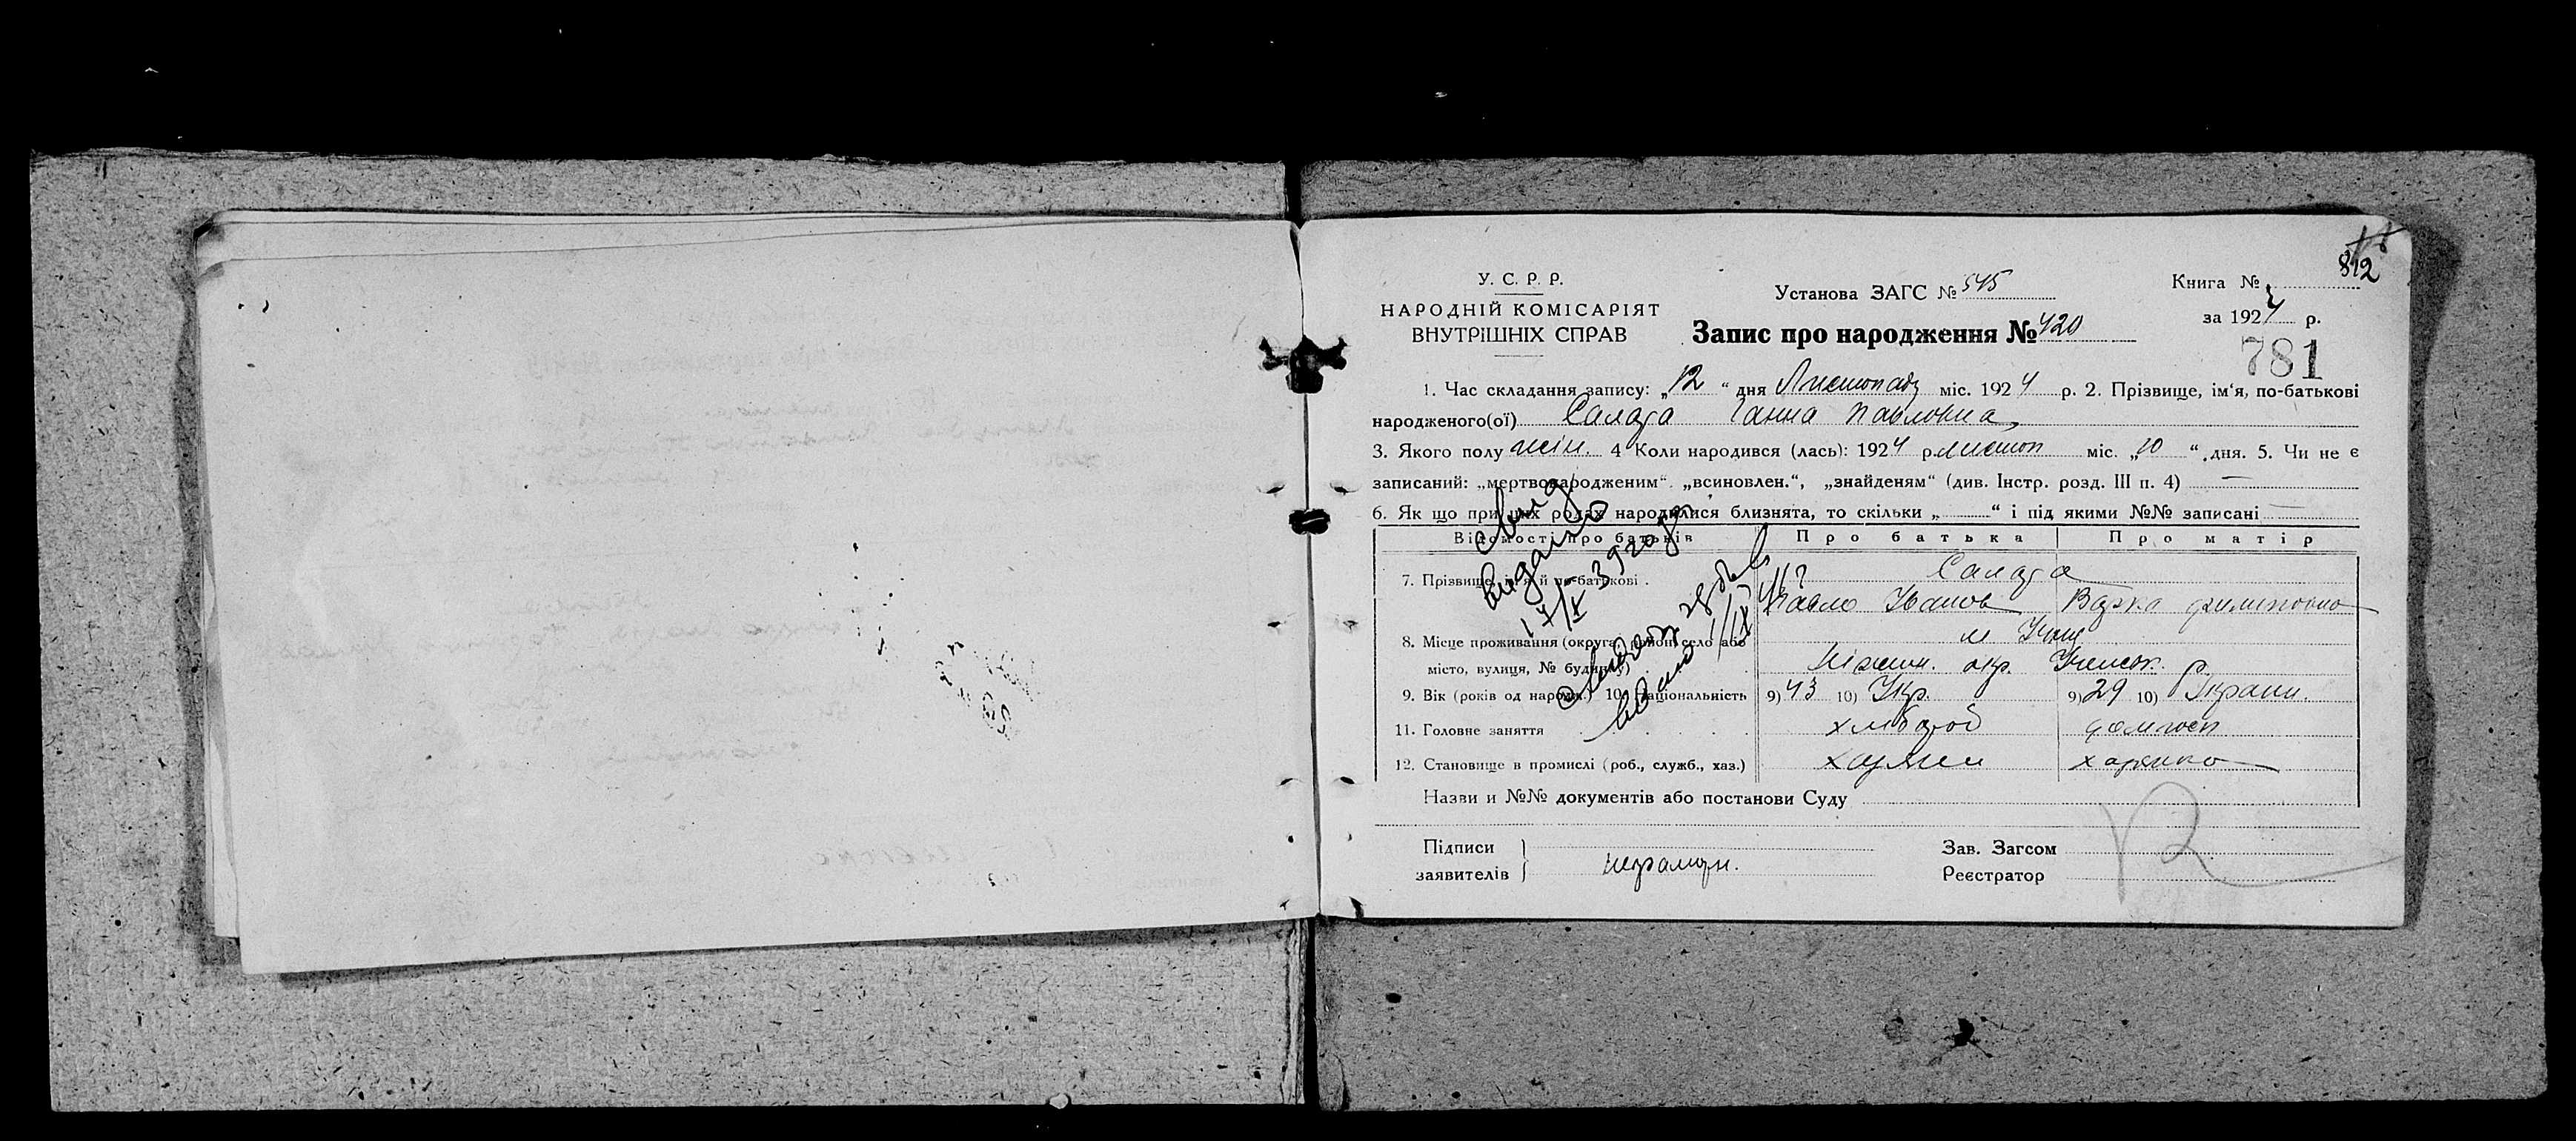 812
У. С. Р. Р.
НАРОДНІЙ КОМІСАРІЯТ
ВНУТРІШНІХ СПРАВ
Установа ЗАГС № 545
Запис про народження № 420
Книга №
за 1924 р.
781
1. Час складання запису: „12“ дня Листопаду міс. 1924 р. 2. Прізвище, ім‘я, по-батькові
народженого(ої) Ганна Павловна
3. Якого полу жін. 4 Коли народився (лась): 1924 р. листоп міс. „10“ дня. 5. Чи не є
записаний: „мертвонародженим“ „всиновлен.“, „знайденям“ (див. Інстр. розд. III п. 4) —
6. Як що при цих родах народилися близнята, то скільки „ “ і під якими №№ записані
Відомості про батьків Про батька Про матір
7. Прізвище, ім‘я й по-батькові .
Павло Иванов Варка
8. Місце проживання (округа, район, село або
місто, вулиця, № будинку)
Ніжин. окр. Іченськ.
9. Вік (років од народж.) 10) Національність 9) 43 10) Укр. 9) 29 10) Украин.
11. Головне заняття хлібороб домгосп
12. Становище в промислі (роб., служб., хаз.) хазяин хазяика
Назви и №№ документів або постанови Суду
Підписи
заявителів
неграмотн.
Зав. Загсом
Реєстратор
видано
17/IX 39 года